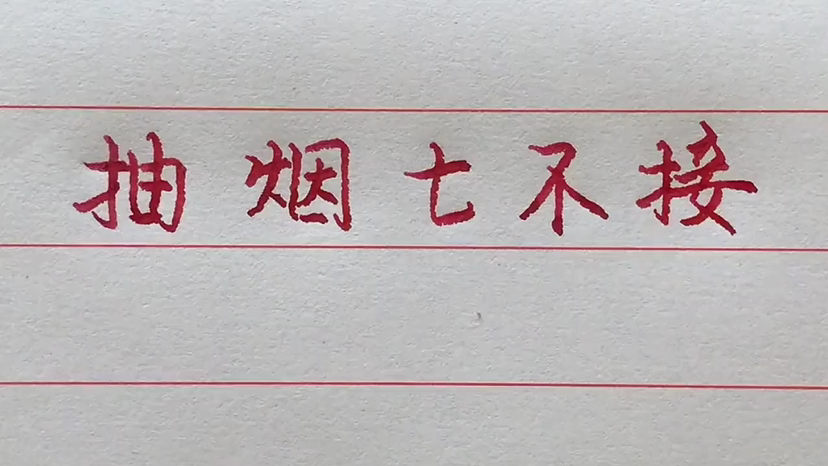 抽烟七不接